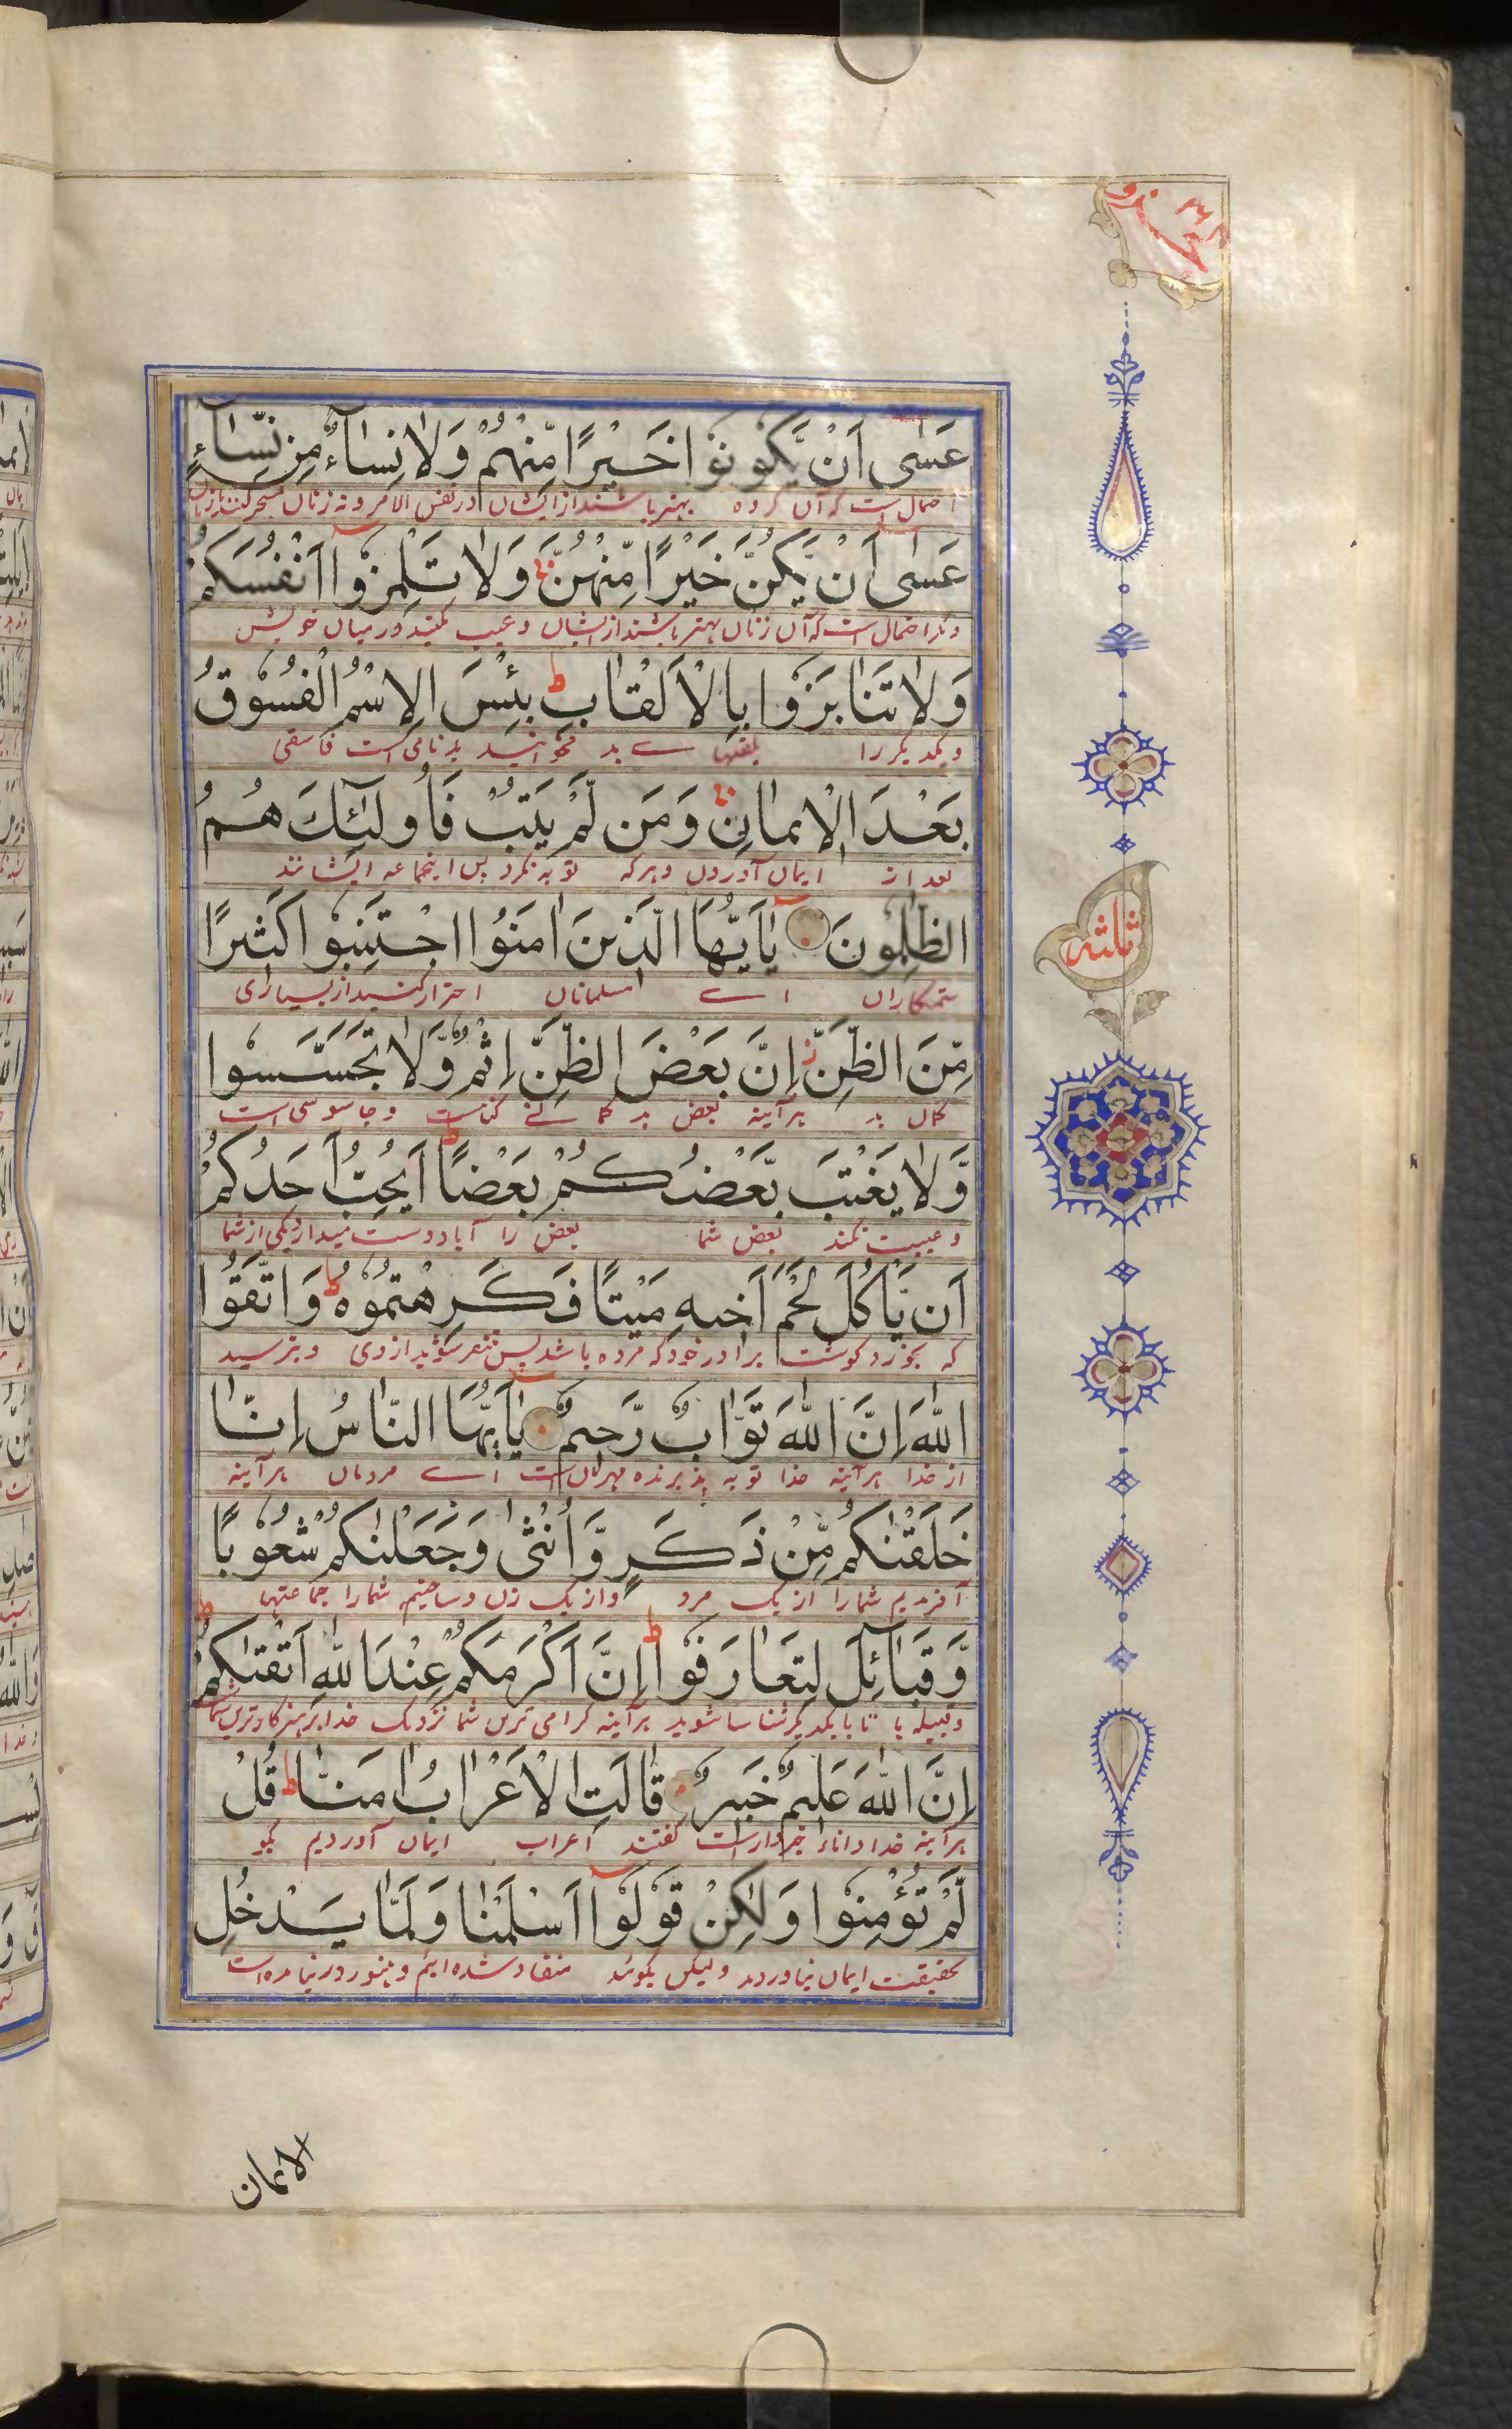 جزو ٢٦
عَسٰى اَنْ يَّكُوْنُوْا خَيْرًا مِّنْهُمْ وَلَا نِسَآءٌ مِّنْ نِّسَآءٍ
احتمال است که آن گروه بهتر باشند از ایشان در نفس الامر و نه زنان تمسخر کنند بازنان
عَسٰى اَنْ يَّكُنَّ خَيْرًا مِّنْهُنَّ وَلَا تَلْمِزُوْٓا اَنْفُسَكُمْ
احتمال است که آن زنان بهتر باشند از ایشان و عیب مکنید در میان خویش
وَلَا تَنَابَزُوْا بِالْاَلْقَابِ ط بِئْسَ الِاسْمُ الْفُسُوْقُ
و یکدیگر را بلقبهاے بد مخوانید بد نامی است فاسقی
بَعْدَ الْاِيْمَانِ وَمَنْ لَّمْ يَتُبْ فَاُولٰٓئِكَ هُمُ
بعد از ایمان آوردن و هرکه توبه نکرد پس اینجماعه ایشانند
الظّٰلِمُوْنَ يٰٓاَيُّهَا الَّذِيْنَ اٰمَنُوا اجْتَنِبُوْا كَثِيْرًا
ستمکاران اے مسلمانان احتراز کنید از بسیاری
ثلثه
مِّنَ الظَّنِّ ز اِنَّ بَعْضَ الظَّنِّ اِثْمٌ وَّلَا تَجَسَّسُوْا
گمان بد هرآینه بعض بد گمانے گناست و جاسوسی است
وَّلَا يَغْتَبْ بَّعْضُكُمْ بَعْضًا ط اَيُحِبُّ اَحَدُكُمْ
و غیبت نکند بعض شما بعض را آیا دوست میدارد یکی از شما
اَنْ يَّاْكُلَ لَحْمَ اَخِيْهِ مَيْتًا فَكَرِهْتُمُوْهُ ط وَاتَّقُوا
که بخورد گوشت برادر خود که مرده باشد پس متنفر شوید از وی و بترسید
اللّٰهَ اِنَّ اللّٰهَ تَوَّابٌ رَّحِيْمٌ يٰٓاَيُّهَا النَّاسُ اِنَّا
از خدا هرآینه خدا توبه پذیرنده مهربان است اے مردمان هرآینه
خَلَقْنٰكُمْ مِّنْ ذَكَرٍ وَّاُنْثٰى وَجَعَلْنٰكُمْ شُعُوْبًا
آفریدیم شمارا از یک مرد و از یک زن و ساختیم شمارا جماعتها
وَّقَبَآئِلَ لِتَعَارَفُوْا ط اِنَّ اَكْرَمَكُمْ عِنْدَ اللّٰهِ اَتْقٰىكُمْ ط
و قبیله ها تا با یکدیگر شناسا شوید هرآینه گرامی ترین شما نزدیک خدا پرهیزگارترین شما
اِنَّ اللّٰهَ عَلِيْمٌ خَبِيْرٌ قَالَتِ الْاَعْرَابُ اٰمَنَّا ط قُلْ
هرآینه خدا داناء خبردار است گفتند اعراب ایمان آوردیم بگو
لَّمْ تُؤْمِنُوْا وَلٰكِنْ قُوْلُوْٓا اَسْلَمْنَا وَلَمَّا يَدْخُلِ
بحقیقت ایمان نیاوردید ولیکن بگوئید منقاد شده ایم و هنوز در نیامده است
الایمان